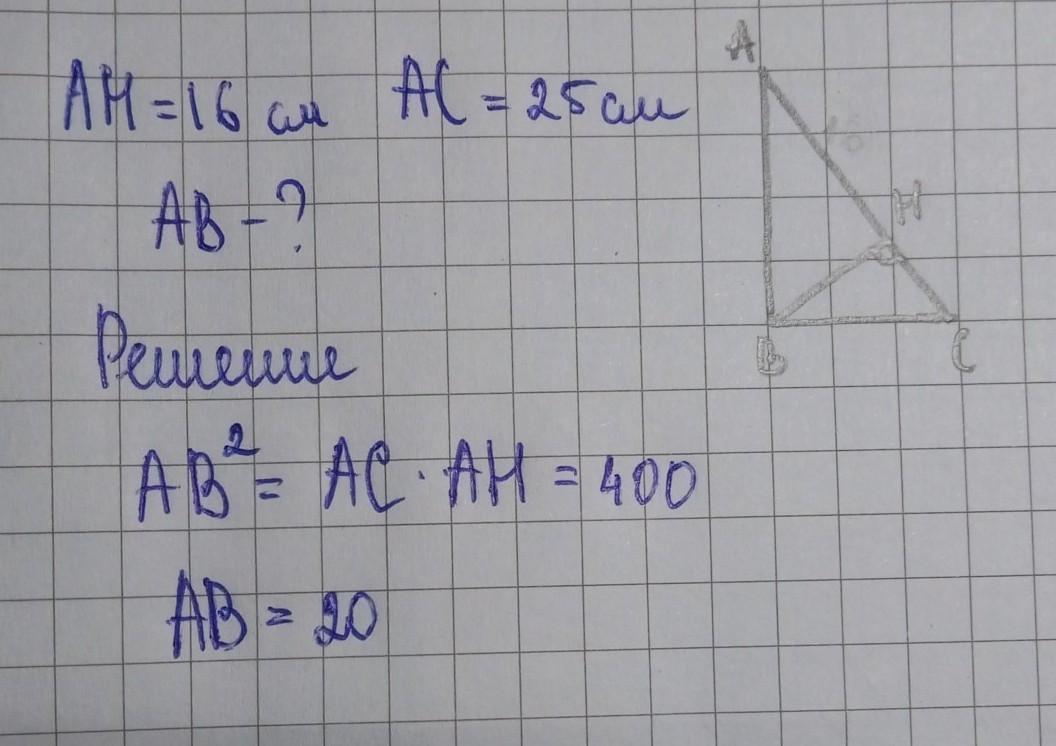 AH = 16 см AC = 25 см
AB - ?
Решение
AB² = AC · AH = 400
AB = 20
A
H
B
C